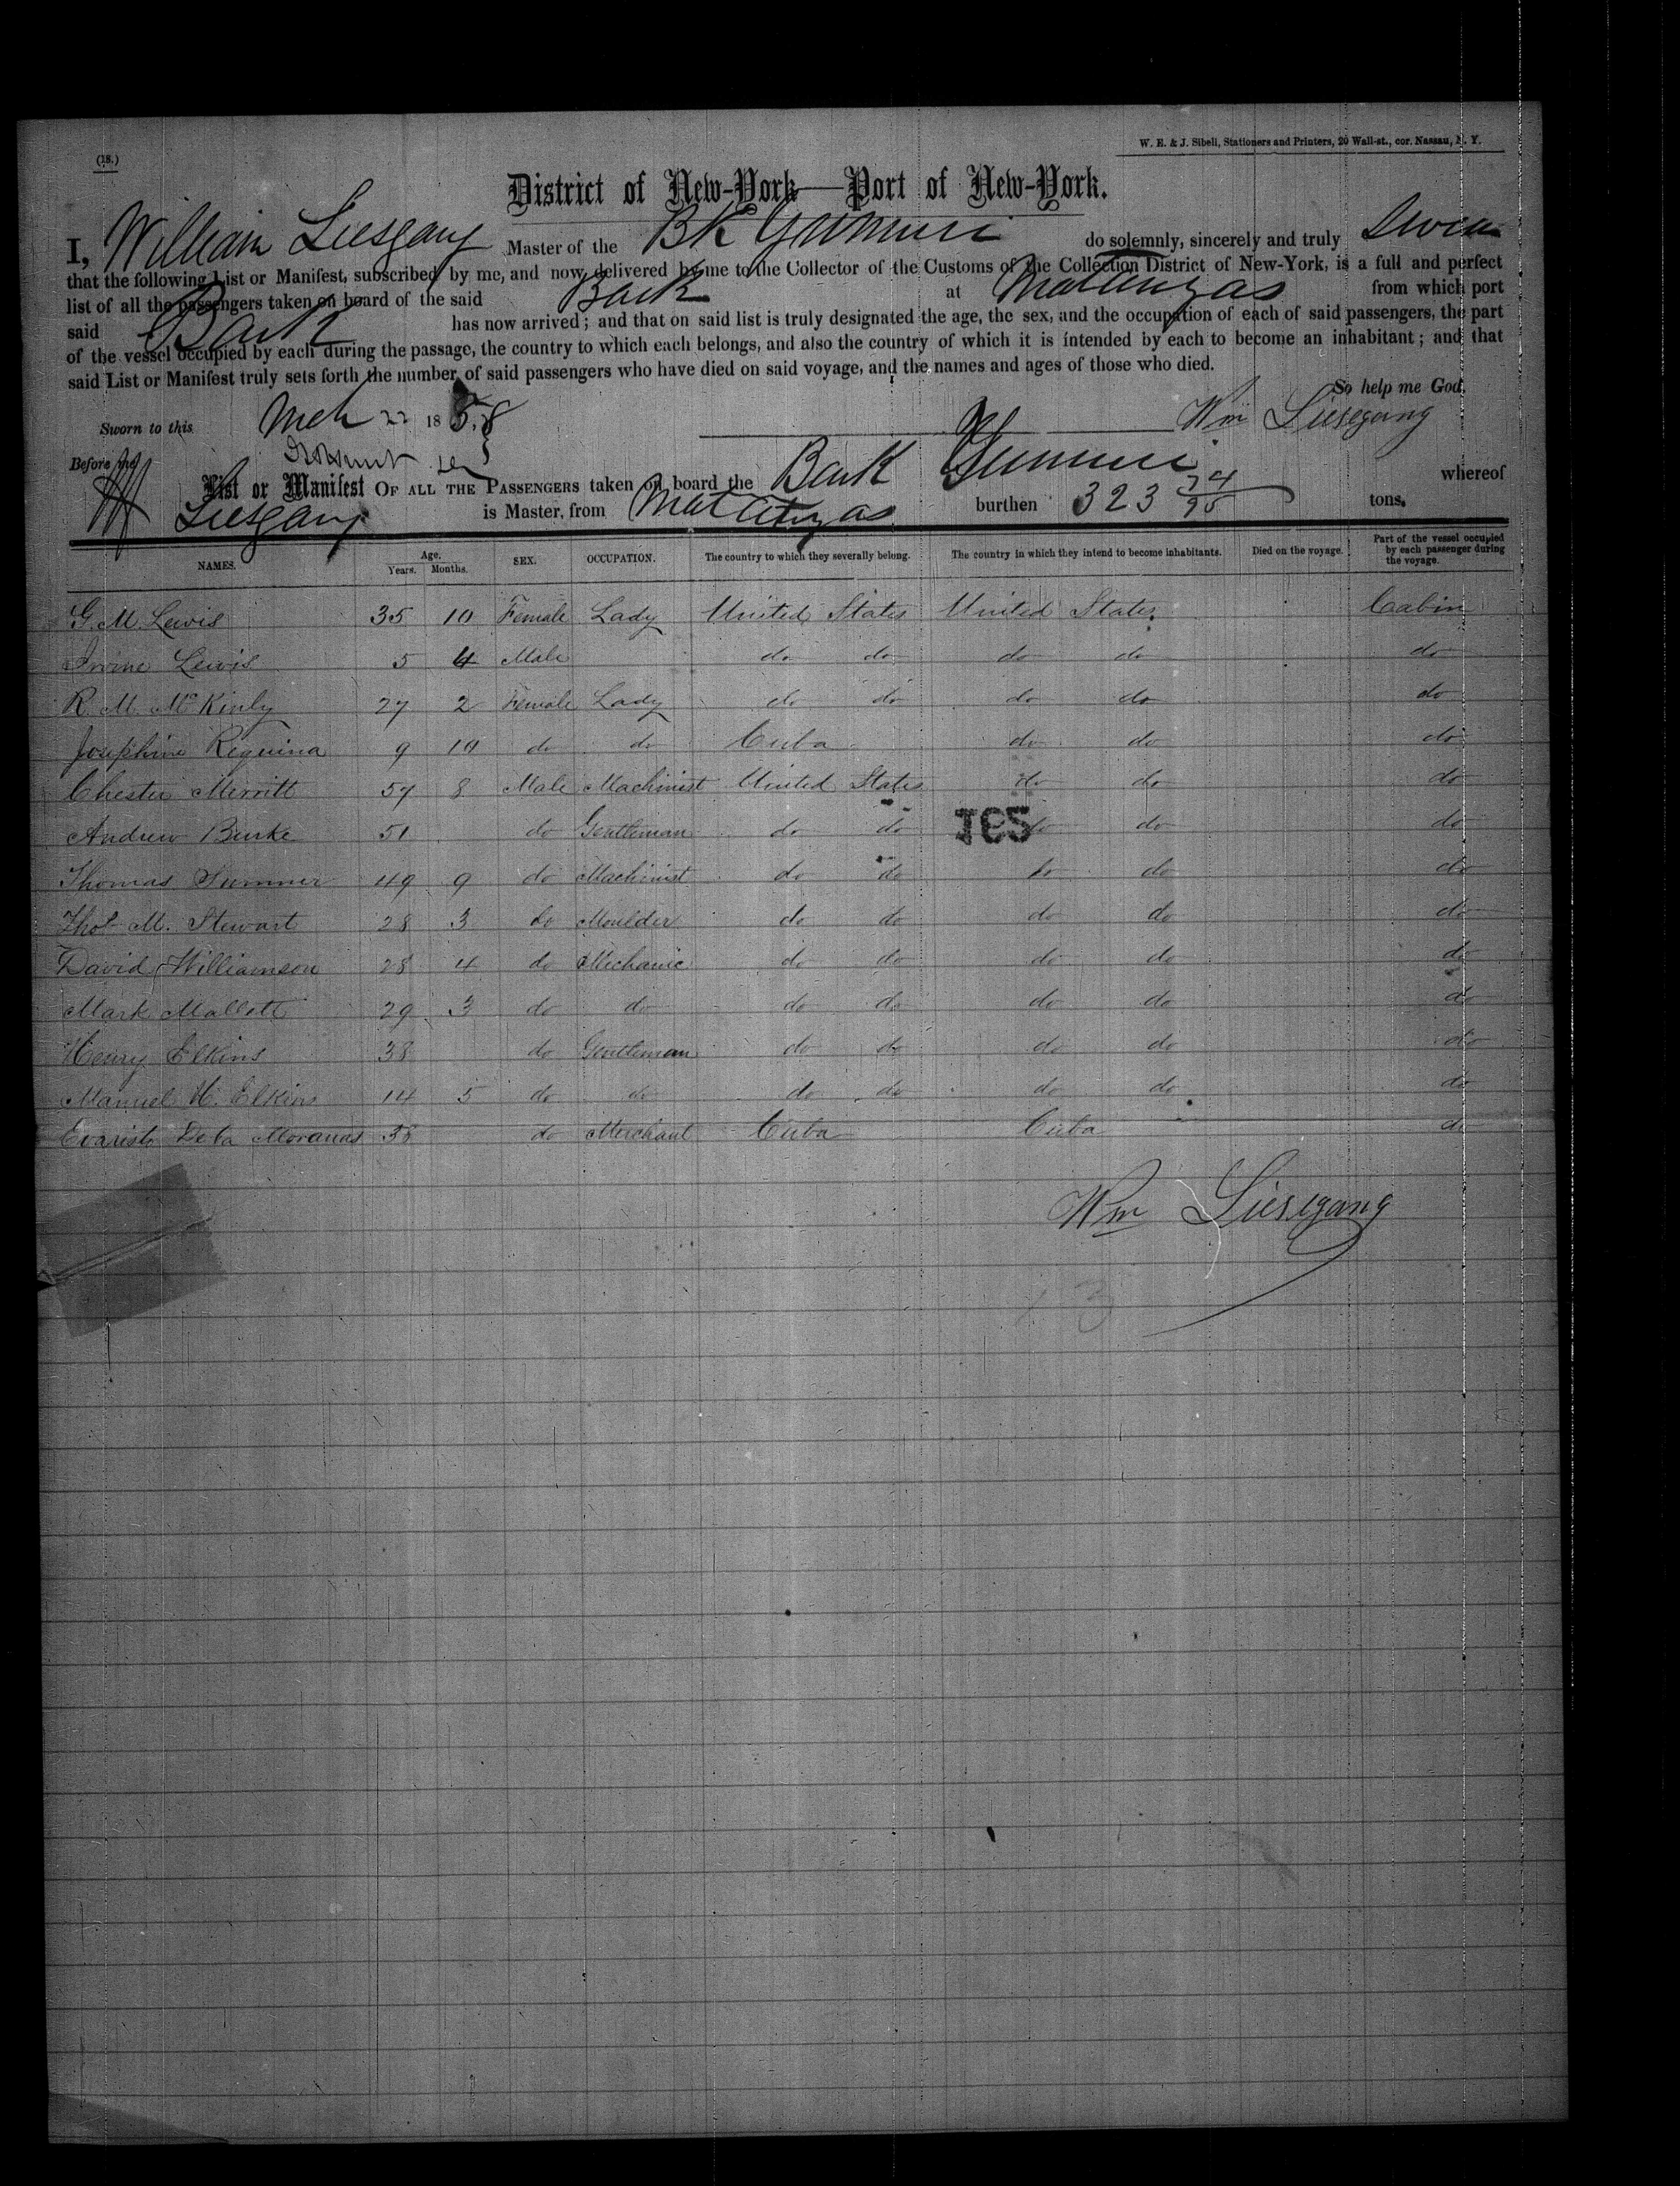 (18.)
W. E. & J. Sibell, Stationers and Printers, 20 Wall-st., cor. Nassau, N. Y.
District of New-York—Port of New-York.
I, William Liesgang Master of the Bk do solemnly, sincerely and truly Swear
that the following List or Manifest, subscribed by me, and now delivered by me to the Collector of the Customs of the Collection District of New-York, is a full and perfect
list of all the passengers taken on board of the said Bark at Matanzas from which port
said Bark has now arrived; and that on said list is truly designated the age, the sex, and the occupation of each of said passengers, the part
of the vessel occupied by each during the passage, the country to which each belongs, and also the country of which it is intended by each to become an inhabitant; and that
said List or Manifest truly sets forth the number of said passengers who have died on said voyage, and the names and ages of those who died.
So help me God.
Sworn to this Mch 22 1858 Wm Liesegang
Before me
List or Manifest OF ALL THE PASSENGERS taken on board the Bark whereof
Liesgang is Master, from Matanzas burthen 323 tons.
NAMES. Age. Years. Months. SEX. OCCUPATION. The country to which they severally belong. The country in which they intend to become inhabitants. Died on the voyage. Part of the vessel occupied by each passenger during the voyage.
G. M. Lewis 35 10 Female Lady United States United States Cabin
Irvine Lewis 5 4 Male do do do do do
R. M. McKinly 27 2 Female Lady do do do do do
Josephine Requina 9 10 do do Cuba do do do
Chester Merritt 57 8 Male Machinist United States do do do
Andrew Burke 51 do Gentleman do do do do do
Thomas Sumner 49 9 do Machinist do do do do do
Thos M. Stewart 28 3 do Moulder do do do do do
David Williamson 28 4 do Mechanic do do do do do
Mark Mallett 29 3 do do do do do do do
Henry Elkins 38 do Gentleman do do do do do
Manuel H. Elkins 14 5 do do do do do do do
Evaristo De la Moranas 38 do Merchant Cuba Cuba do
Wm Liesegang